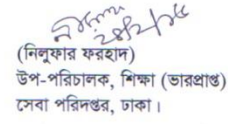 ২৪/২/১৫
(নিলুফার ফরহাদ)
উপ-পরিচালক, শিক্ষা (ভারপ্রাপ্ত)
সেবা পরিদপ্তর, ঢাকা।